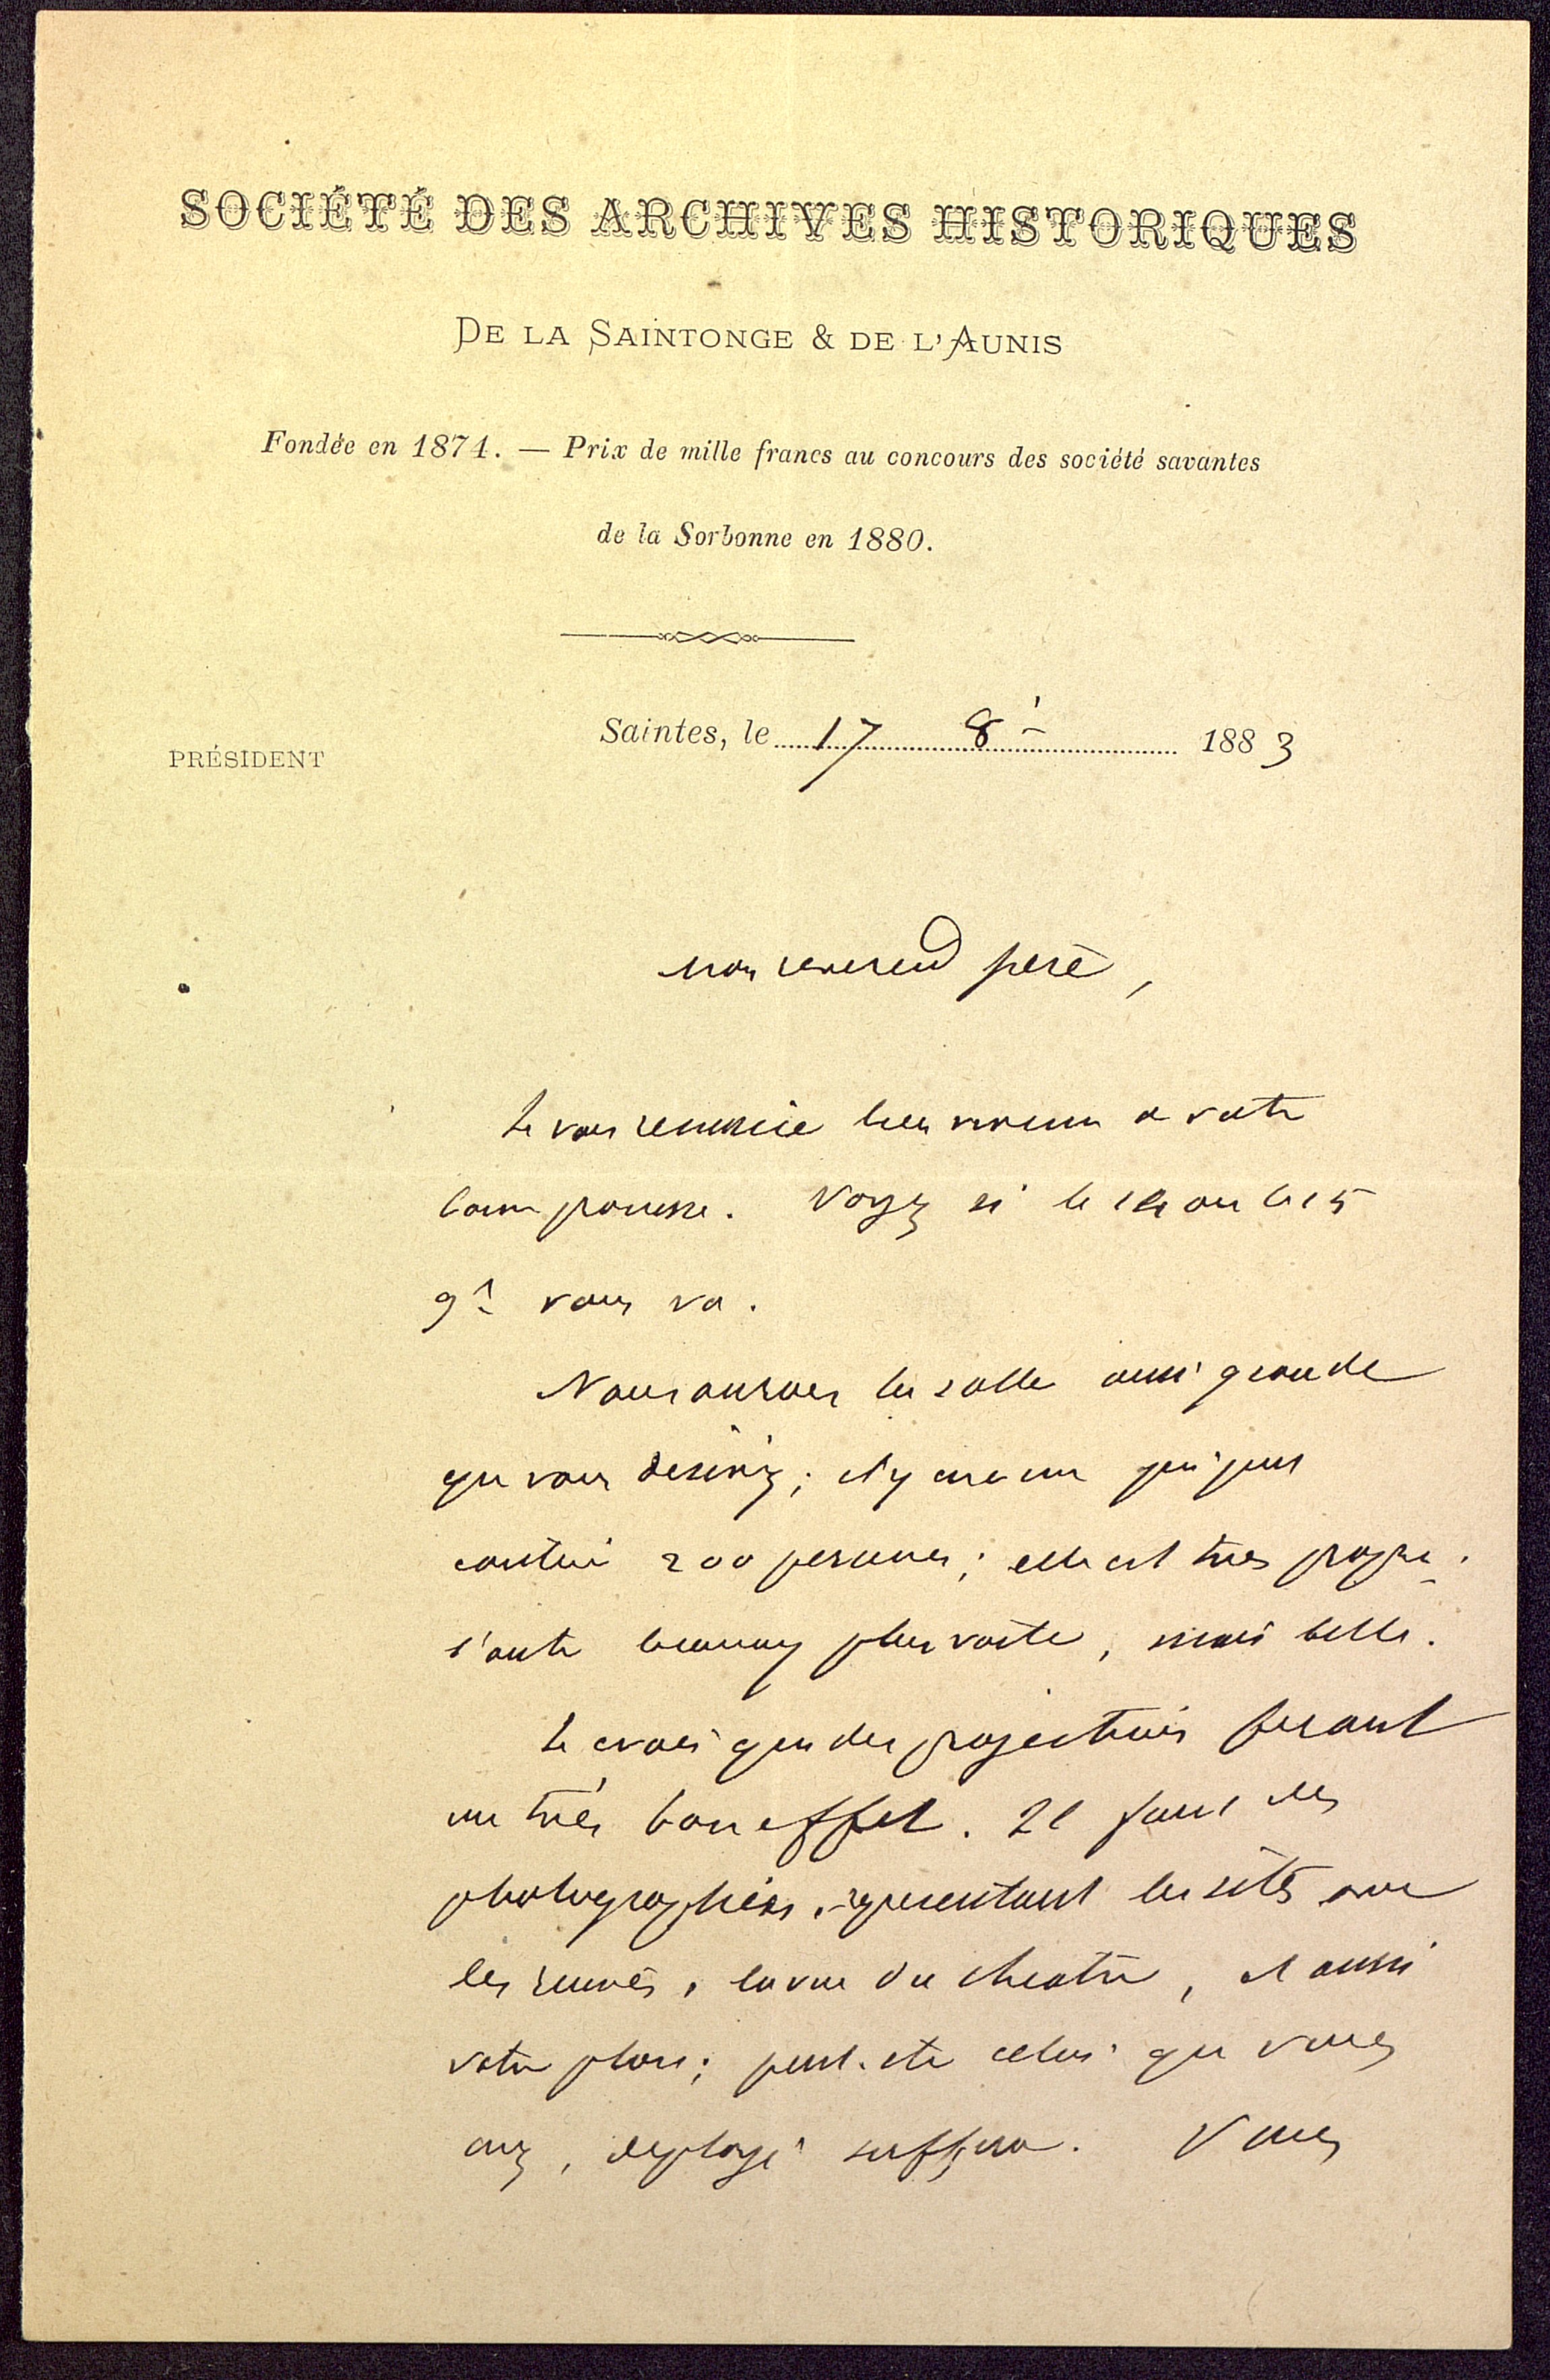 SOCIÉTÉ DES ARCHIVES HISTORIQUES
DE LA SAINTONGE & DE L'AUNIS
Fondée en 1874. — Prix de mille francs au concours des société savantes
de la Sorbonne en 1880.
Saintes, le 17 8 1883
PRÉSIDENT
mon reverend père,
Je vous remercie bien de votre
bonne promesse. Voyez si le 14 ou le 15
9 vous va.
Nous aurons la salle aussi grande
que vous desirez; il y en a une qui peut
contenir 200 personnes; elle est tres propre;
l'autre beaucoup plus vaste, moins belle.
Je crois que des projections feront
un très bon effet. Il faut des
photographies representant les sites avec
les ruines, la vue du theatre, et aussi
votre plan; peut-etre celui que vous
avez deployé suffira. Vous